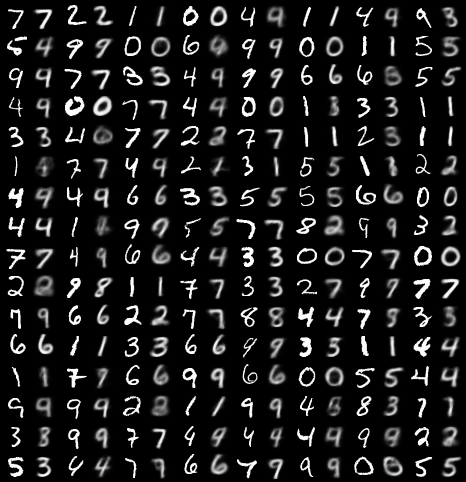 7 7 2 2 1 1 0 0 4 9 1 1 4 9 9 3
5 4 9 9 0 0 6 9 9 0 0 1 1 5 5
9 9 7 7 3 3 4 9 9 9 6 6 6 5 5
4 9 0 0 7 7 4 9 0 0 1 8 3 3 1 1
3 3 4 7 7 2 2 7 7 1 1 2 3 1 1
1 7 7 4 9 2 3 1 5 5 1 2 2
4 9 4 9 6 6 3 3 5 5 5 5 6 6 0 0
4 4 1 9 9 5 5 7 7 8 2 9 9 3 2
7 7 4 9 6 6 4 4 3 3 0 0 7 7 0 0
2 2 9 8 1 1 7 7 3 3 2 7 9 9 7 7
7 9 6 6 2 2 7 7 8 8 4 4 7 9 3 3
6 6 1 1 3 3 6 6 9 9 3 5 1 1 4 4
1 1 7 9 6 6 9 9 6 6 0 0 5 5 4 4
9 9 9 9 2 2 1 1 9 9 4 8 3 7 7
3 8 9 9 7 7 4 9 4 9 4 9 9 9 2 2
5 3 4 4 7 9 6 6 7 9 9 9 0 0 5 5